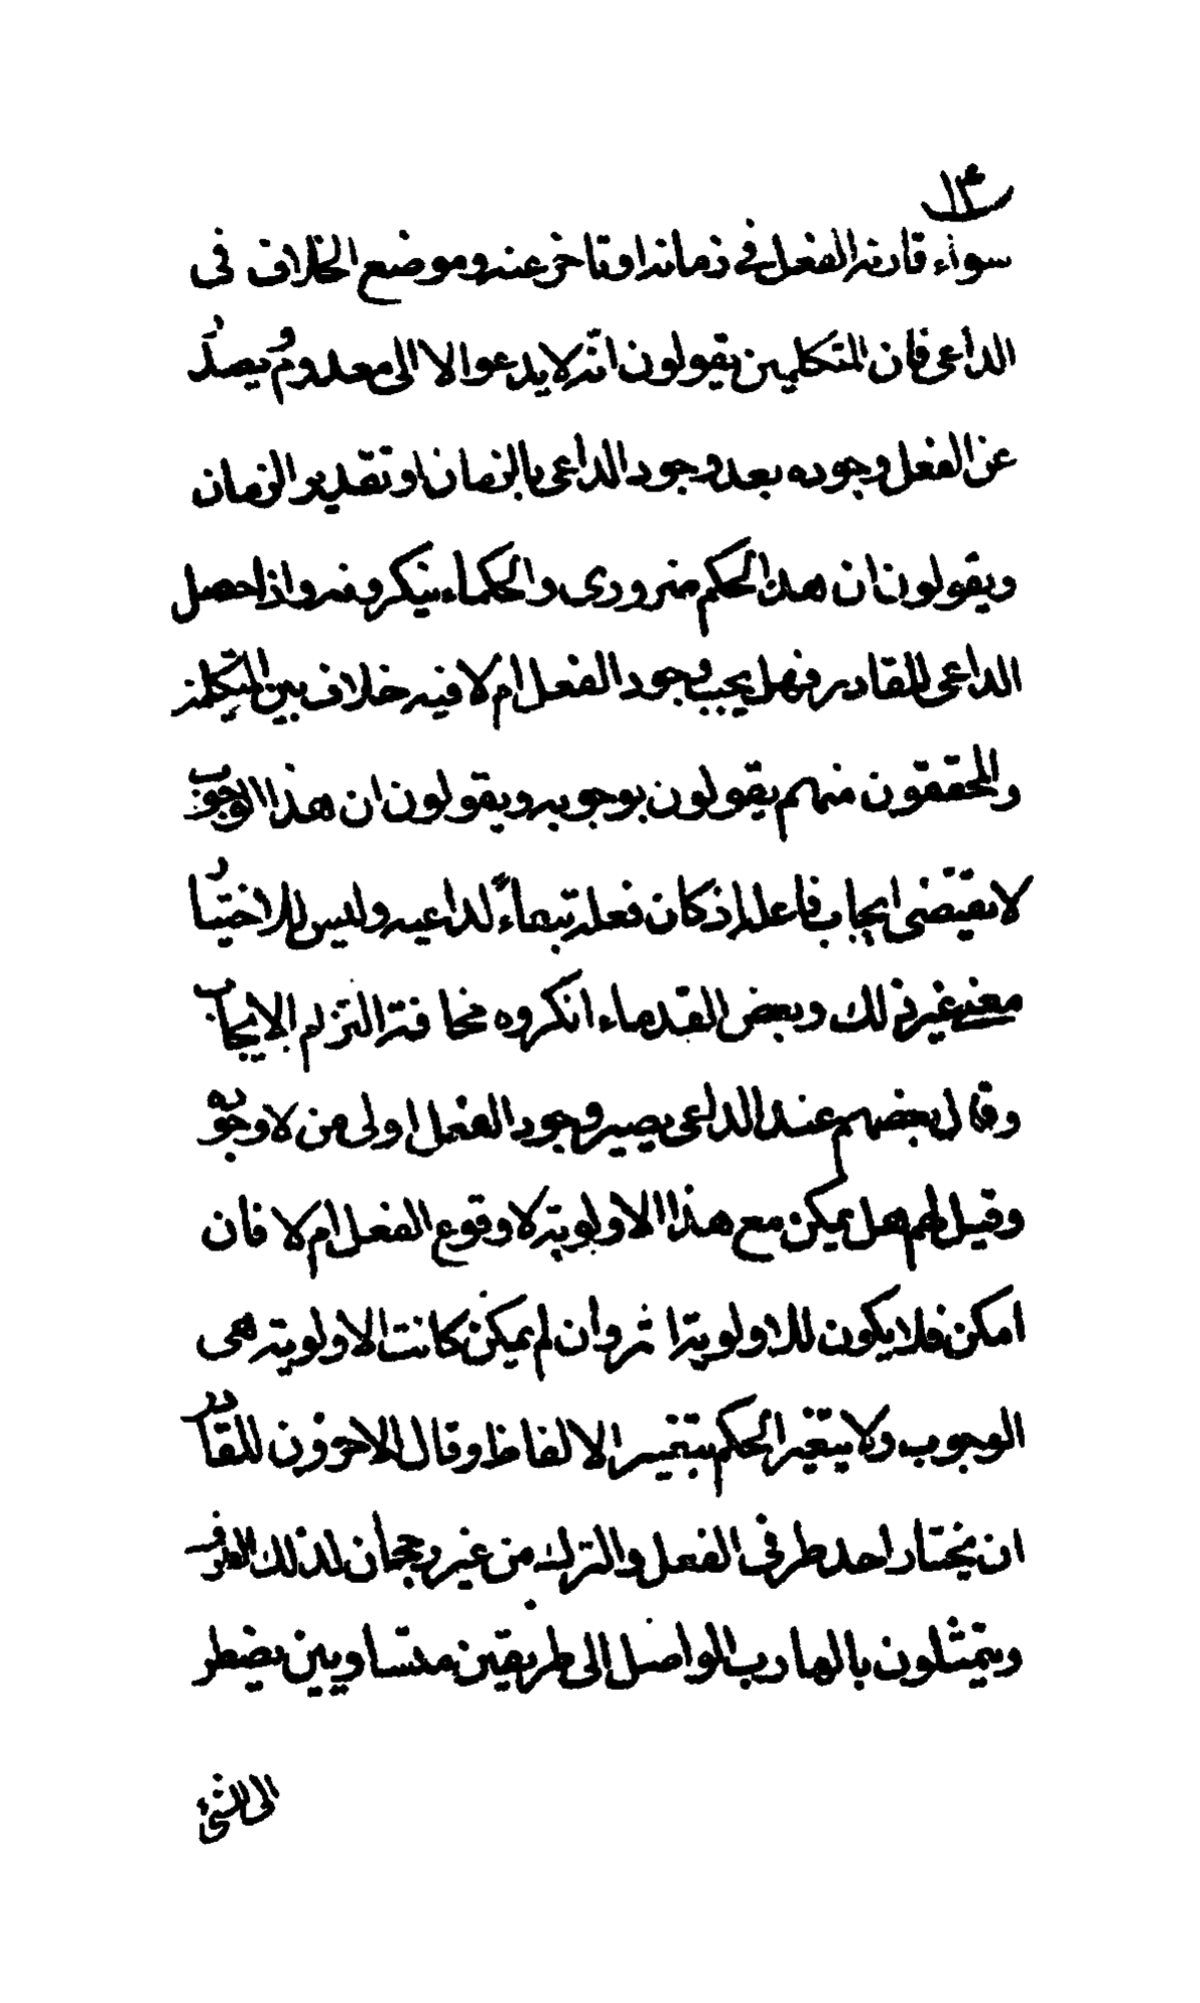 ١٣
سواء قارنه الفعل فى زمانه او تاخر عنه وموضع الخلاف فى
الداعى فان المتكلمين يقولون انّه لا يدعوا الا الى معدوم ويصدر
عن الفعل وجوده بعد وجود الداعى بالزمان او تقدير الزمان
ويقولون ان هذا الحكم ضرورى والحكماء ينكرونه واذا حصل
الداعى للقادر فهل يجب وجود الفعل ام لا فيه خلاف بين المتكلمين
والمحققون منهم يقولون بوجوبه ويقولون ان هذا الوجوب
لا يقتضى ايجاب فاعله اذ كان فعله تبعاً لداعيه وليس للاختيار
معنى غير ذلك وبعض القدماء انكروه مخافة التزام الايجاب
وقال بعضهم عند الداعى يصير وجود الفعل اولى من لا وجوده
وقيل لهم هل يمكن مع هذا الاولوية لا وقوع الفعل ام لا فان
امكن فلا يكون للاولوية اثر وان لم يمكن كانت الاولوية هى
الوجوب ولا يتغير الحكم بتغيير الالفاظ وقال الاخرون للقادر
ان يختار احد طرفى الفعل والترك من غير رجحان لذلك الطرف
ويتمثلون بالهارب الواصل الى طريقين متساويين يضطر
الى الشئ